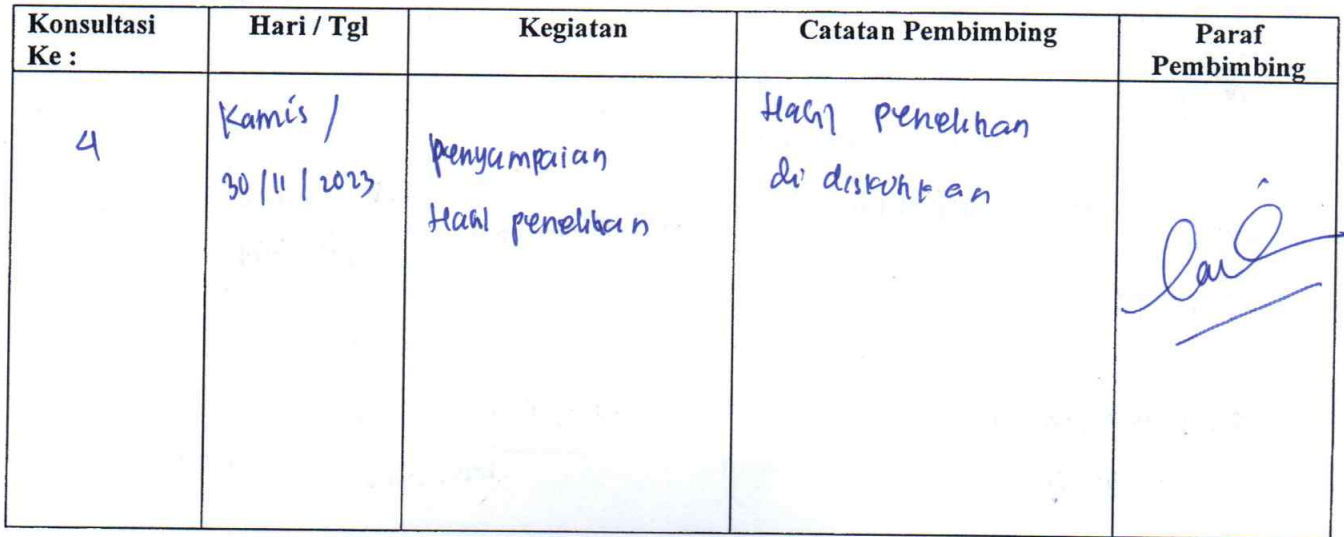 Konsultasi Ke :
Hari / Tgl
Kegiatan
Catatan Pembimbing
Paraf Pembimbing
4
Kamis /
30/11/2023
penyampaian
Hasil penelitian
Hasil penelitian
di diskusikan